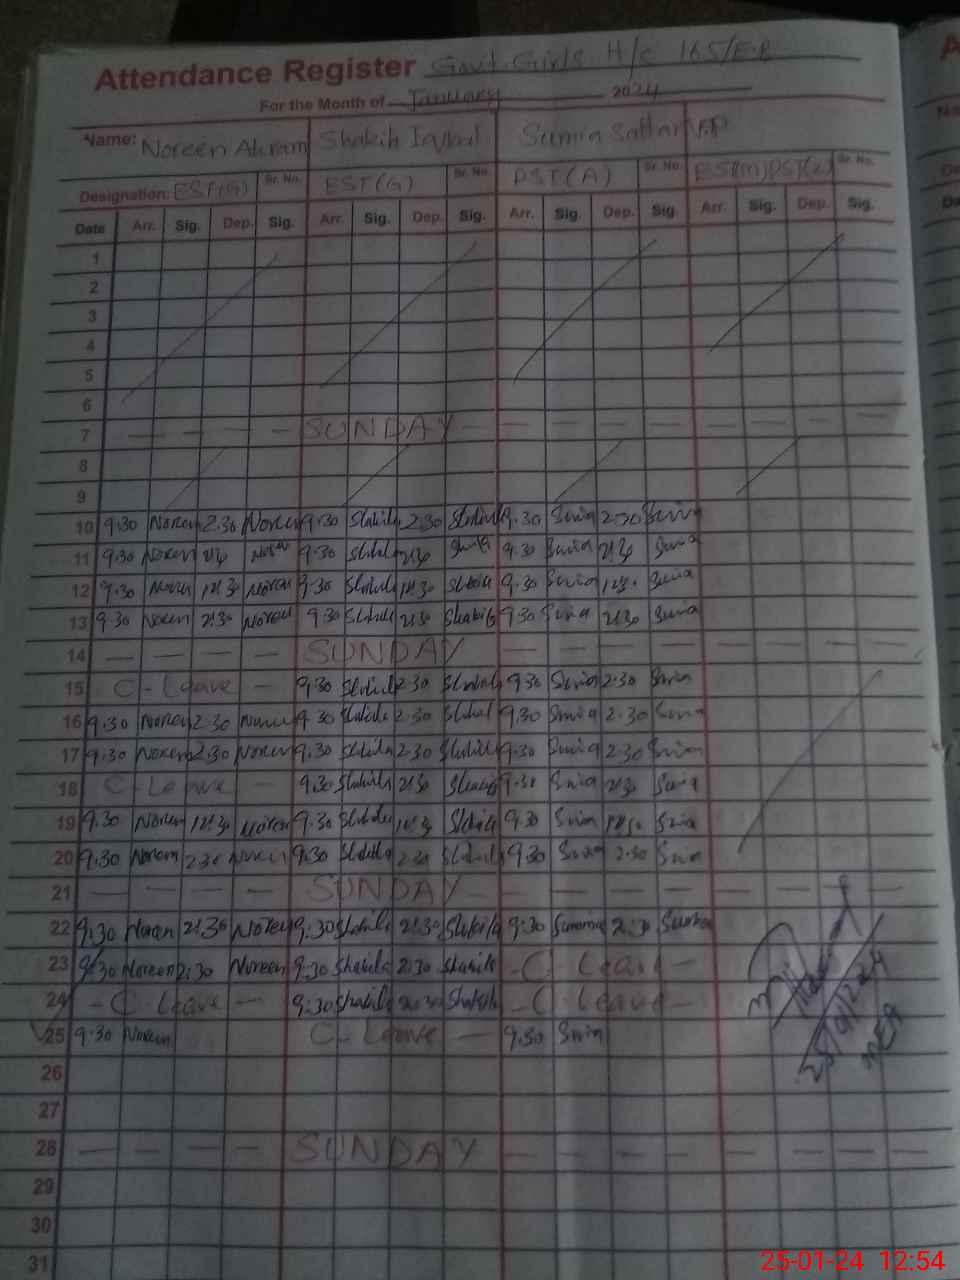 Attendance Register Govt. Girls H/C 165/E.B
For the Month of January 2024
Name: Noreen Akram Shakila Iqbal Sumia Sattar V.P
Designation: EST(G) Sr. No. EST(G) Sr. No. PST(A) Sr. No. EST(M)PST(2) Sr. No.
Date Arr. Sig. Dep. Sig. Arr. Sig. Dep. Sig. Arr. Sig. Dep. Sig. Arr. Sig. Dep. Sig.
1
2
3
4
5
6
7 — — — — SUNDAY — — — — — — — —
8
9
10 9.30 Noreen 2.30 Noreen 9.30 Shakila 2.30 Shakila 9.30 Sumia 2.30 Sumia
11 9.30 Noreen 2:30 Noreen 9.30 Shakila 2:30 Shakila 9.30 Sumia 2:30 Sumia
12 9.30 Noreen 12:30 Noreen 9.30 Shakila 12:30 Shakila 9.30 Sumia 12:30 Sumia
13 9.30 Noreen 2:30 Noreen 9.30 Shakila 2:30 Shakila 9.30 Sumia 2:30 Sumia
14 — — — — SUNDAY — — — — — — — —
15 C-Leave — 9.30 Shakila 2.30 Shakila 9.30 Sumia 2.30 Sumia
16 9.30 Noreen 2.30 Noreen 9.30 Shakila 2.30 Shakila 9.30 Sumia 2.30 Sumia
17 9.30 Noreen 2.30 Noreen 9.30 Shakila 2.30 Shakila 9.30 Sumia 2.30 Sumia
18 C-Leave — 9.30 Shakila 2:30 Shakila 9.30 Sumia 2:30 Sumia
19 9.30 Noreen 12:30 Noreen 9.30 Shakila 12:30 Shakila 9.30 Sumia 12:30 Sumia
20 9.30 Noreen 2.30 Noreen 9.30 Shakila 2.30 Shakila 9.30 Sumia 2.30 Sumia
21 — — — — SUNDAY — — — — — — — —
22 9.30 Noreen 2:30 Noreen 9.30 Shakila 2:30 Shakila 9.30 Sumia 2:30 Sumia
23 9.30 Noreen 2:30 Noreen 9.30 Shakila 2.30 Shakila - C - Leave -
24 - C - Leave - 9.30 Shakila 2:30 Shakila - C - Leave -
25 9.30 Noreen C - Leave — 9.30 Sumia
25/01/2024
MEA
26
27
28 — — — — SUNDAY — — — — — — — —
29
30
31
25-01-24 12:54